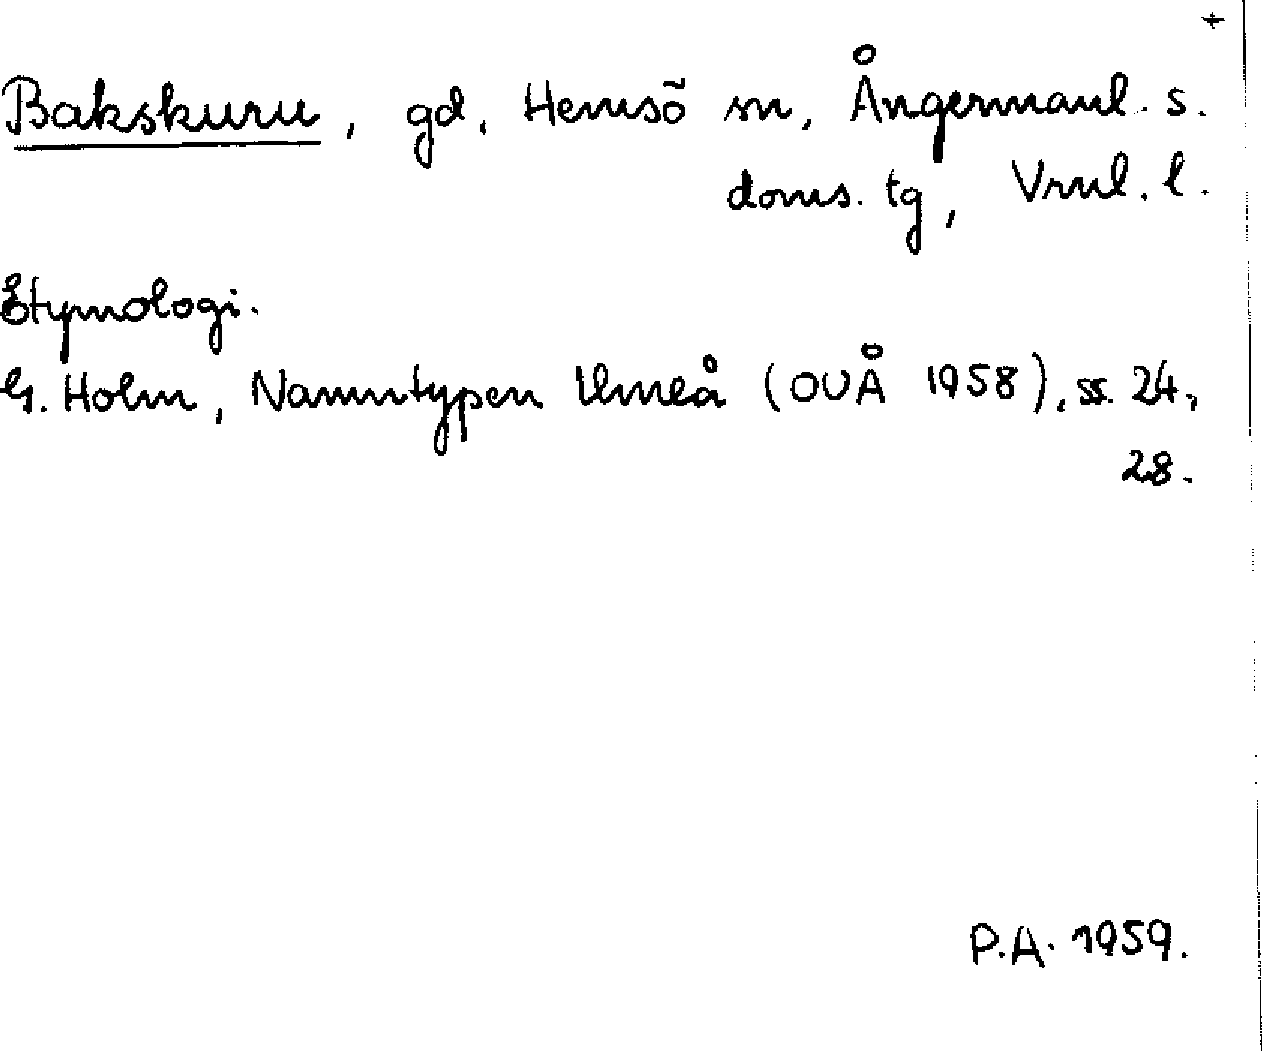 +
Bakskuru, gd, Hemsö sn, Ångermanl. s.
doms. tg, Vrnl. l.
Etymologi.
G. Holm, Namntypen Umeå (OUÅ 1958), ss. 24,
28.
P.A. 1959.